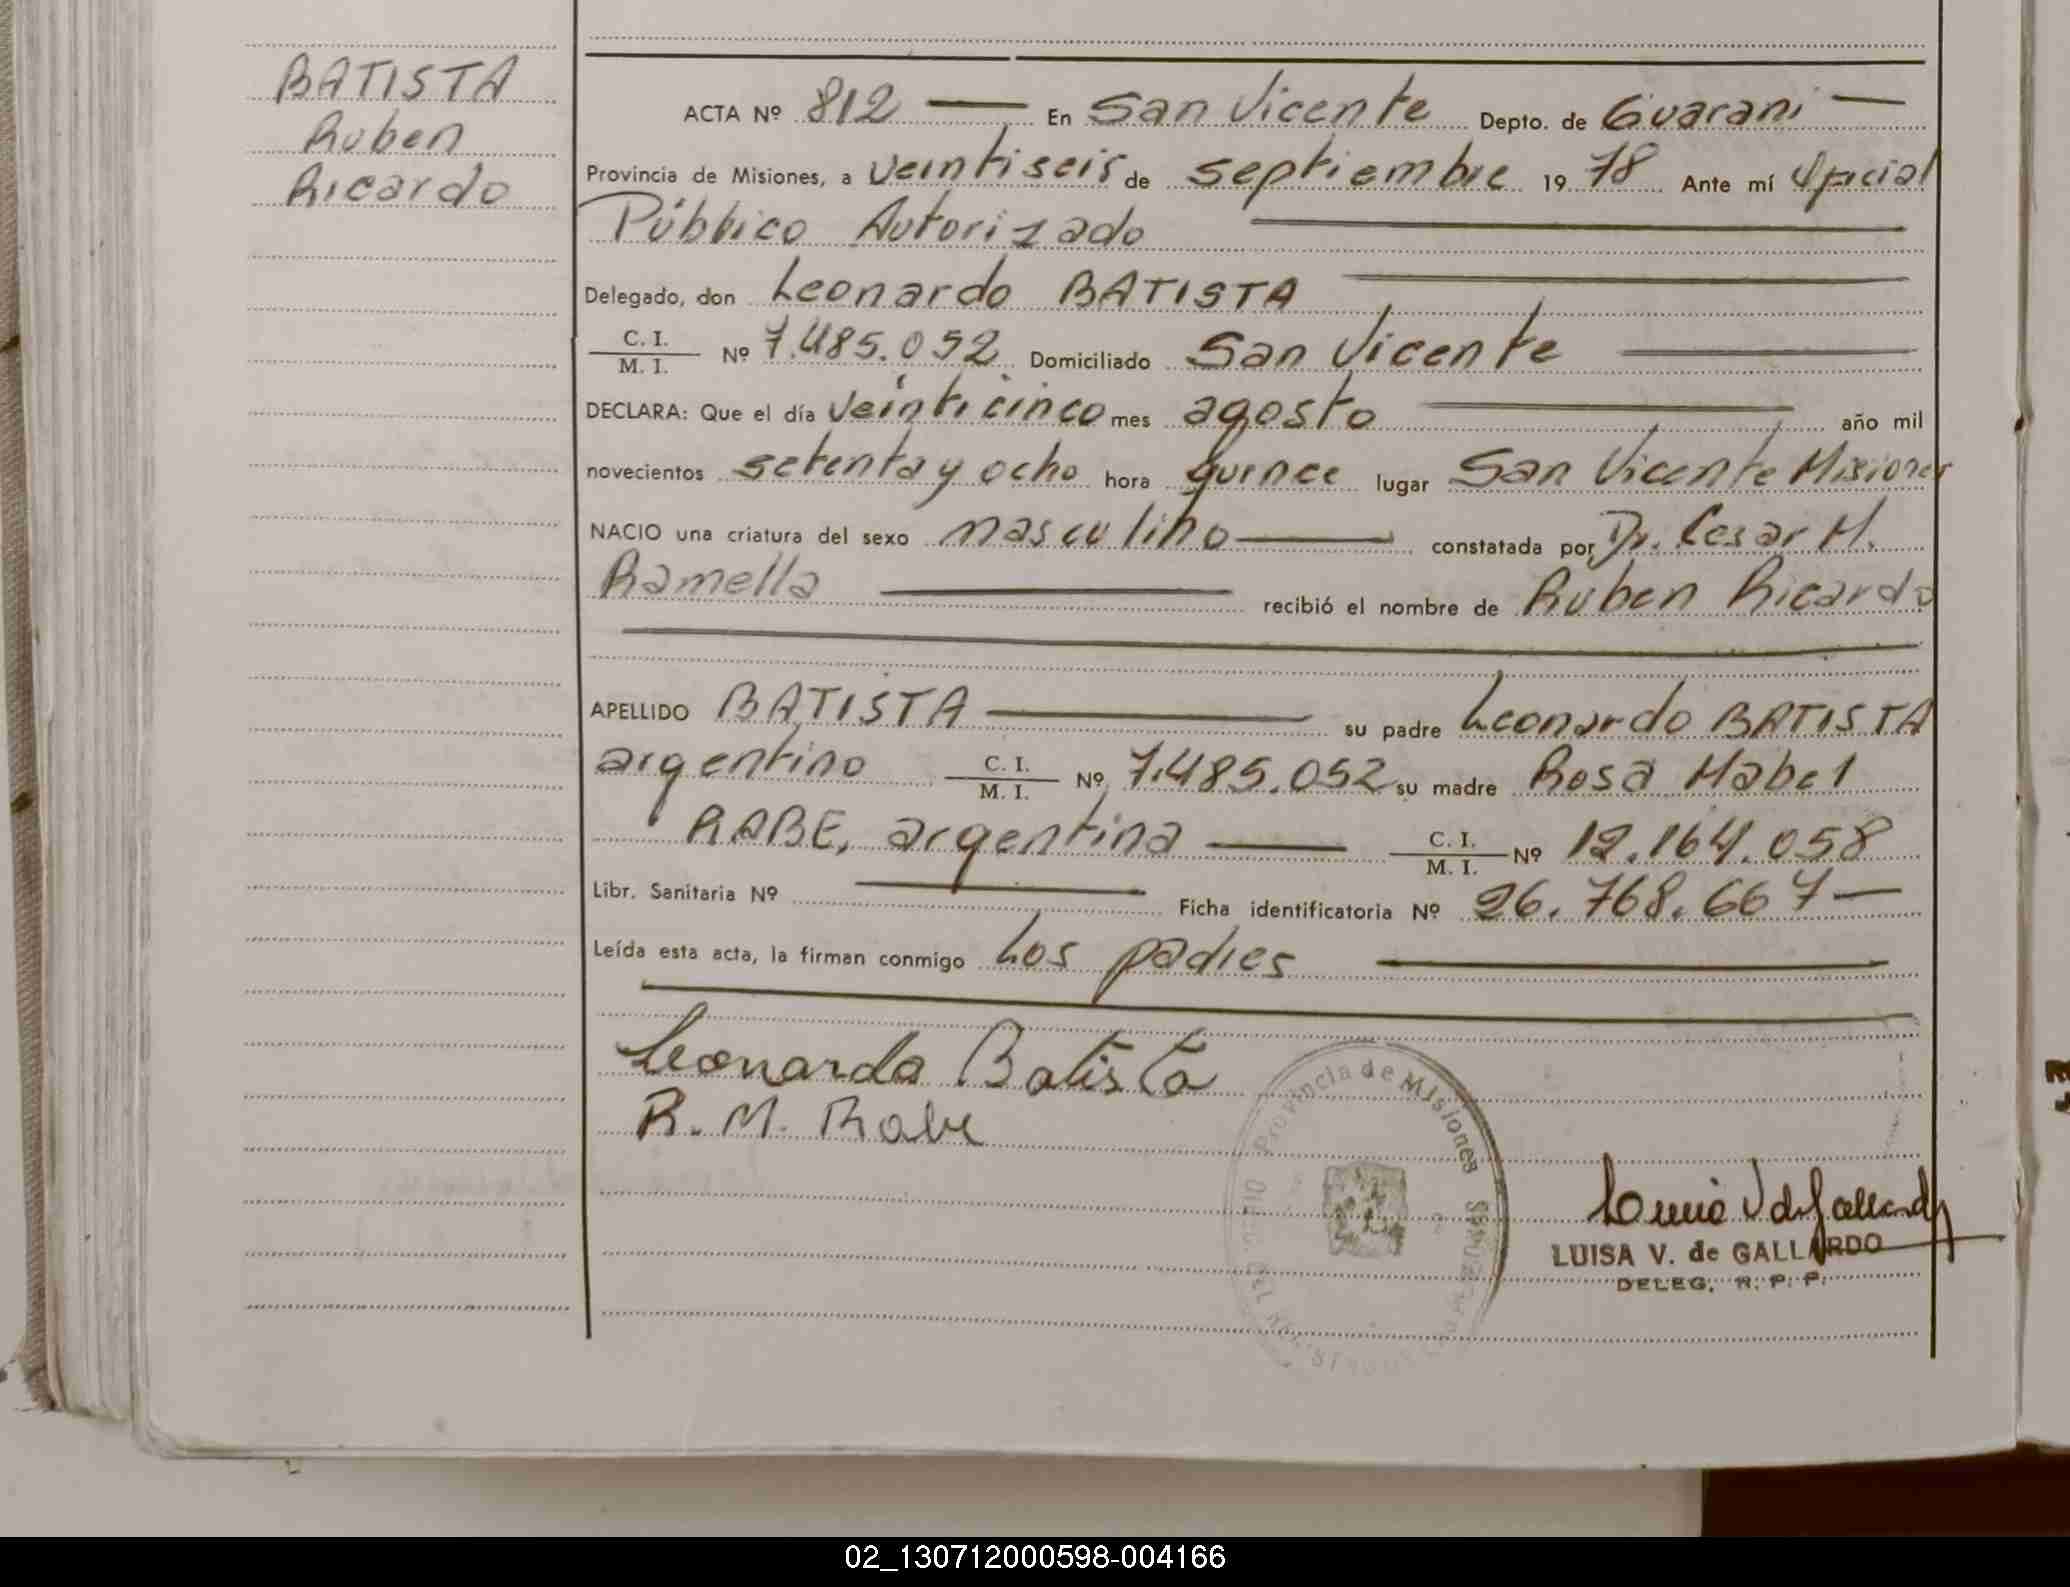 BATISTA
Ruben
Ricardo
ACTA Nº 812 — En San Vicente Depto. de Guarani —
Provincia de Misiones, a veintiseis de septiembre 19 78 Ante mí Oficial
Público Autorizado
Delegado, don Leonardo BATISTA
C. I.
M. I. Nº 7.485.052 Domiciliado San Vicente
DECLARA: Que el día veinticinco mes agosto año mil
novecientos setenta y ocho hora quince lugar San Vicente Misiones
NACIO una criatura del sexo masculino constatada por Dr. Cesar M.
Ramella recibió el nombre de Ruben Ricardo
APELLIDO BATISTA su padre Leonardo BATISTA
argentino C. I.
M. I. Nº 7.485.052 su madre Rosa Mabel
RABE, argentina C. I.
M. I. Nº 12.164.058
Libr. Sanitaria Nº — Ficha identificatoria Nº 26.768.667 —
Leída esta acta, la firman conmigo Los padres
Leonardo Batista
R. M. Rabe
Provincia de Misiones
LUISA V. de GALLARDO
DELEG. R. P. P.
02_130712000598-004166